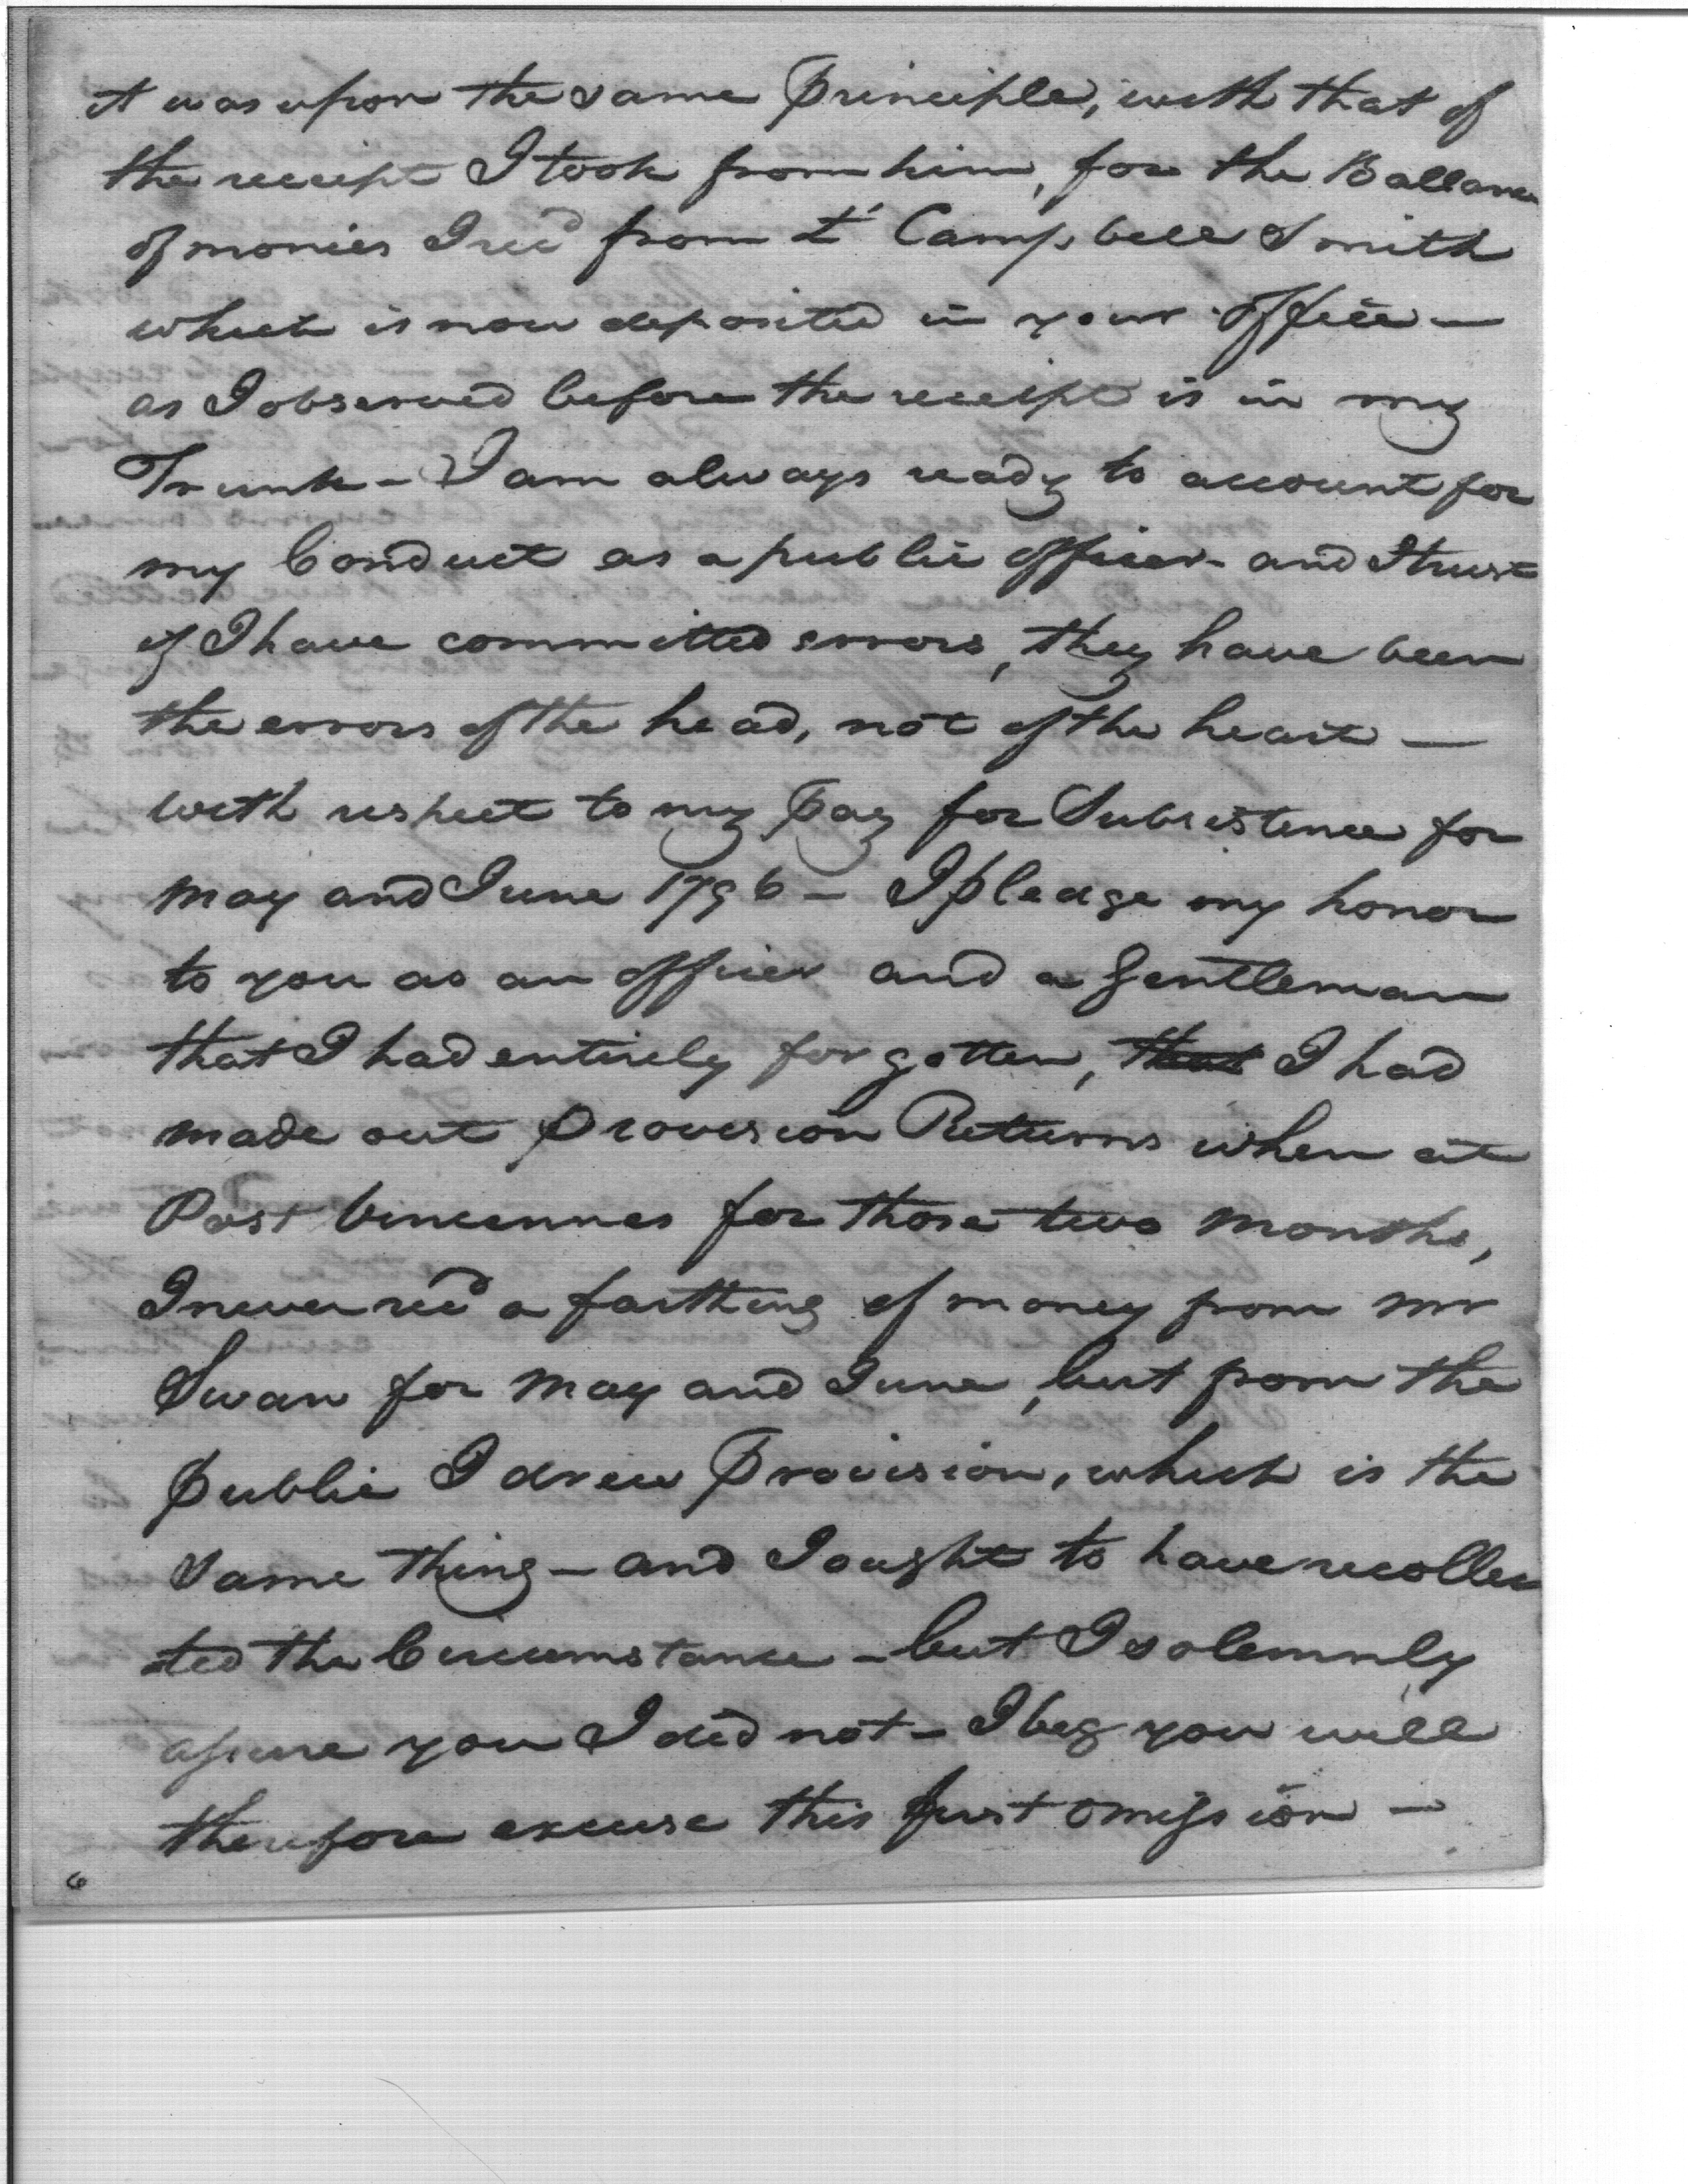 it was upon the same Principle, with that of
the receipt I took from him, for the Ballance
of monies I recd from Lt Campbell Smith
which is now deposited in your office —
as I observed before the receipt is in my
Trunk - I am always ready to account for
my Conduct as a public officer - and I trust
if I have committed errors, they have been
the errors of the head, not of the heart —
with respect to my pay for Subsistence for
may and June 1796 - I pledge my honor
to you as an officer and a Gentleman
that I had entirely forgotten, that I had
made out provision Returns when at
Post Vincennes for those two months,
I never recd a farthing of money from mr
Swan for may and June, but from the
public I drew Provision, which is the
same thing - and I ought to have recollec
ted the Circumstance - but I solemnly
assure you I did not - I beg you will
therefore excuse this first omission —
6